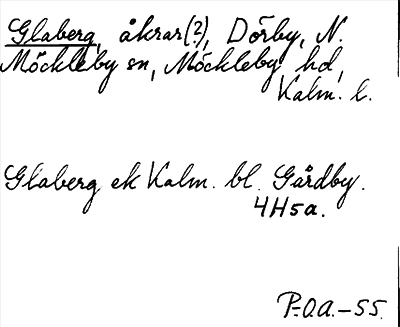 Glaberg, åkrar(?), Dörby, N.
Möckleby sn, Möckleby hd,
Kalm. l.
Glaberg ek Kalm. bl. Gårdby.
4H5a.
P-O.A.-55.